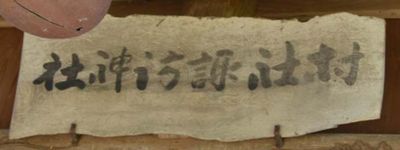 村社諏訪神社